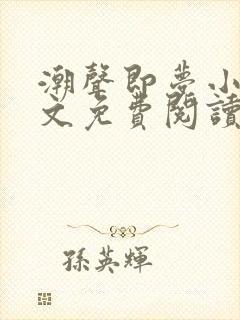 潮聲即夢小
文免費閱讀
孫英輝